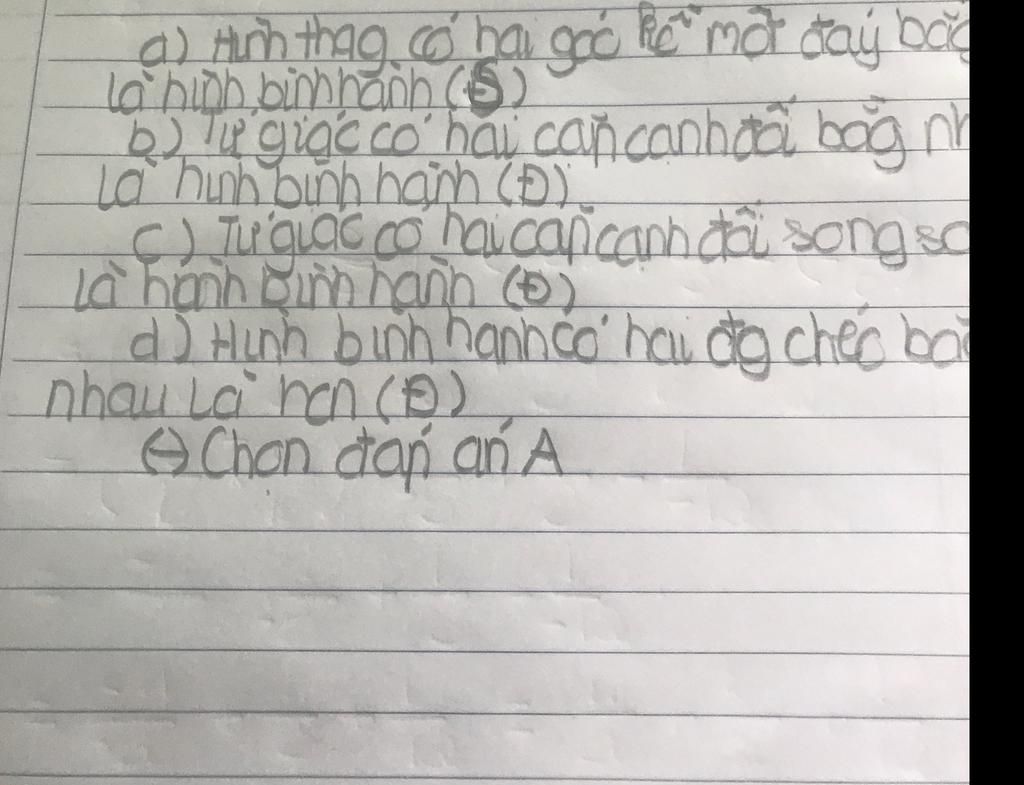 a) Hình thag có hai góc kề một đáy bằg
là hình bình hành (S)
b) Tứ giác có hai cặp cạnh đối bằg nh
là hình bình hành (Đ)
c) Tứ giác có hai cặp cạnh đối song so
là hành bình hành (Đ)
d) Hình bình hành có hai đg chéo bằ
nhau là hcn (Đ)
↔ Chọn đáp án A